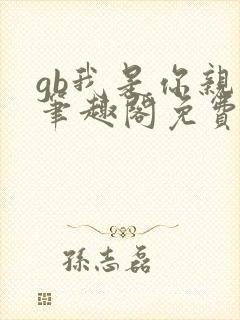 gb我是你親
筆趣閣免費
孫志磊